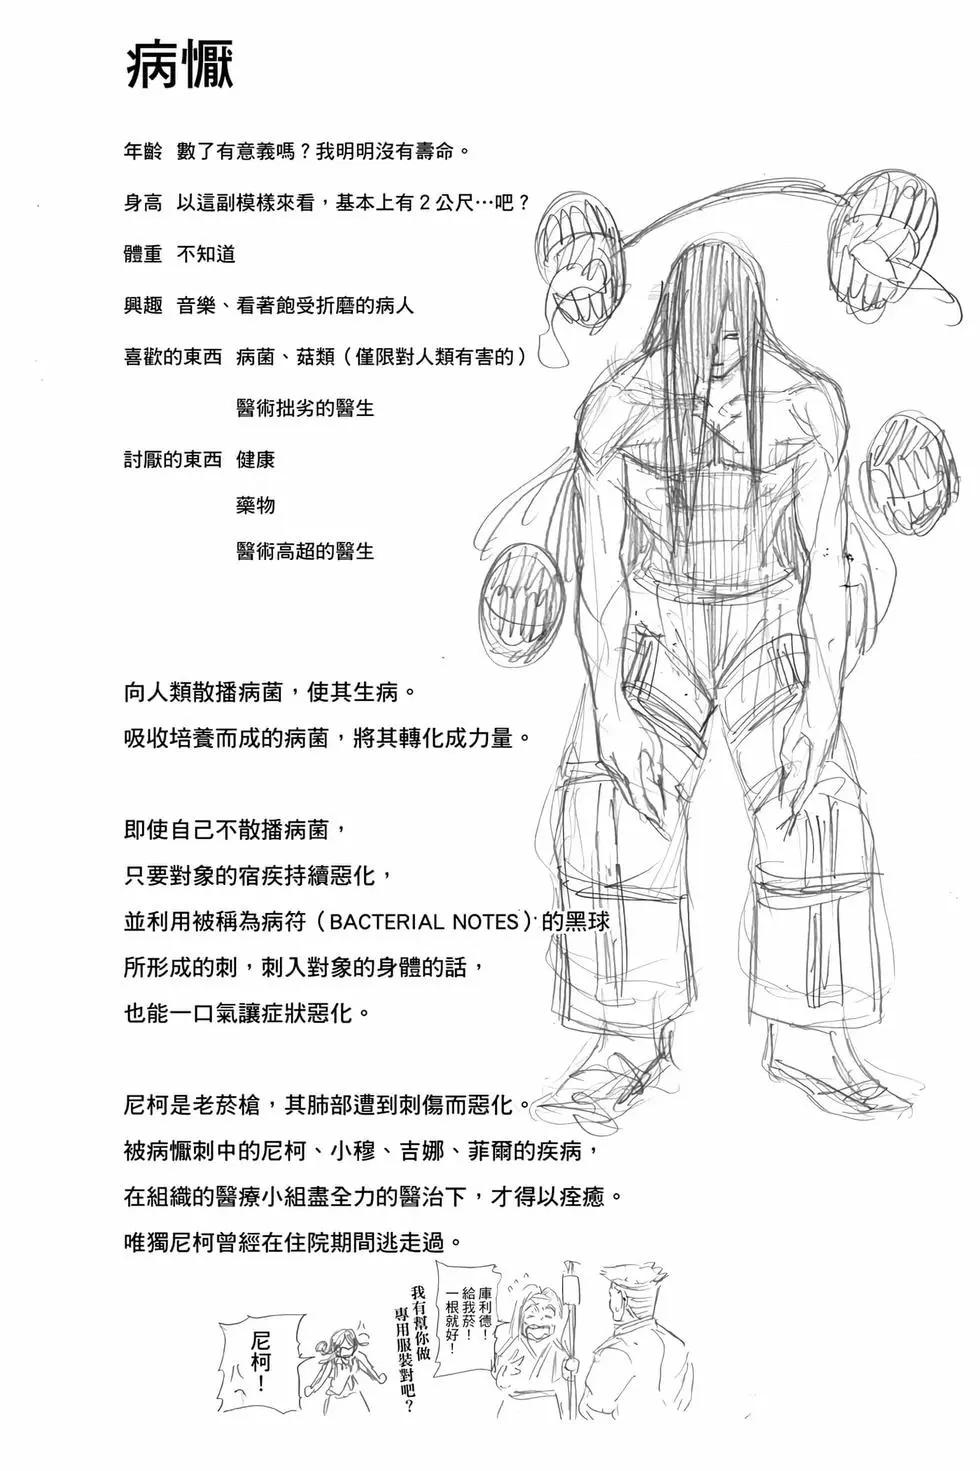 病懨
年齡 數了有意義嗎？我明明沒有壽命。
身高 以這副模樣來看，基本上有2公尺…吧？
體重 不知道
興趣 音樂、看著飽受折磨的病人
喜歡的東西 病菌、菇類（僅限對人類有害的）
醫術拙劣的醫生
討厭的東西 健康
藥物
醫術高超的醫生
向人類散播病菌，使其生病。
吸收培養而成的病菌，將其轉化成力量。
即使自己不散播病菌，
只要對象的宿疾持續惡化，
並利用被稱為病符（BACTERIAL NOTES）的黑球
所形成的刺，刺入對象的身體的話，
也能一口氣讓症狀惡化。
尼柯是老菸槍，其肺部遭到刺傷而惡化。
被病懨刺中的尼柯、小穆、吉娜、菲爾的疾病，
在組織的醫療小組盡全力的醫治下，才得以痊癒。
唯獨尼柯曾經在住院期間逃走過。
庫利德！
給我菸！
一根就好！
我有幫你做
專用服裝對吧？
尼柯！